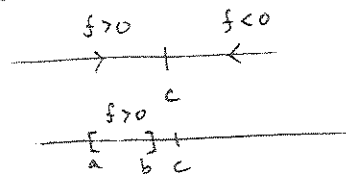 f>0 f<0
c
f>0
[ ]
a b c